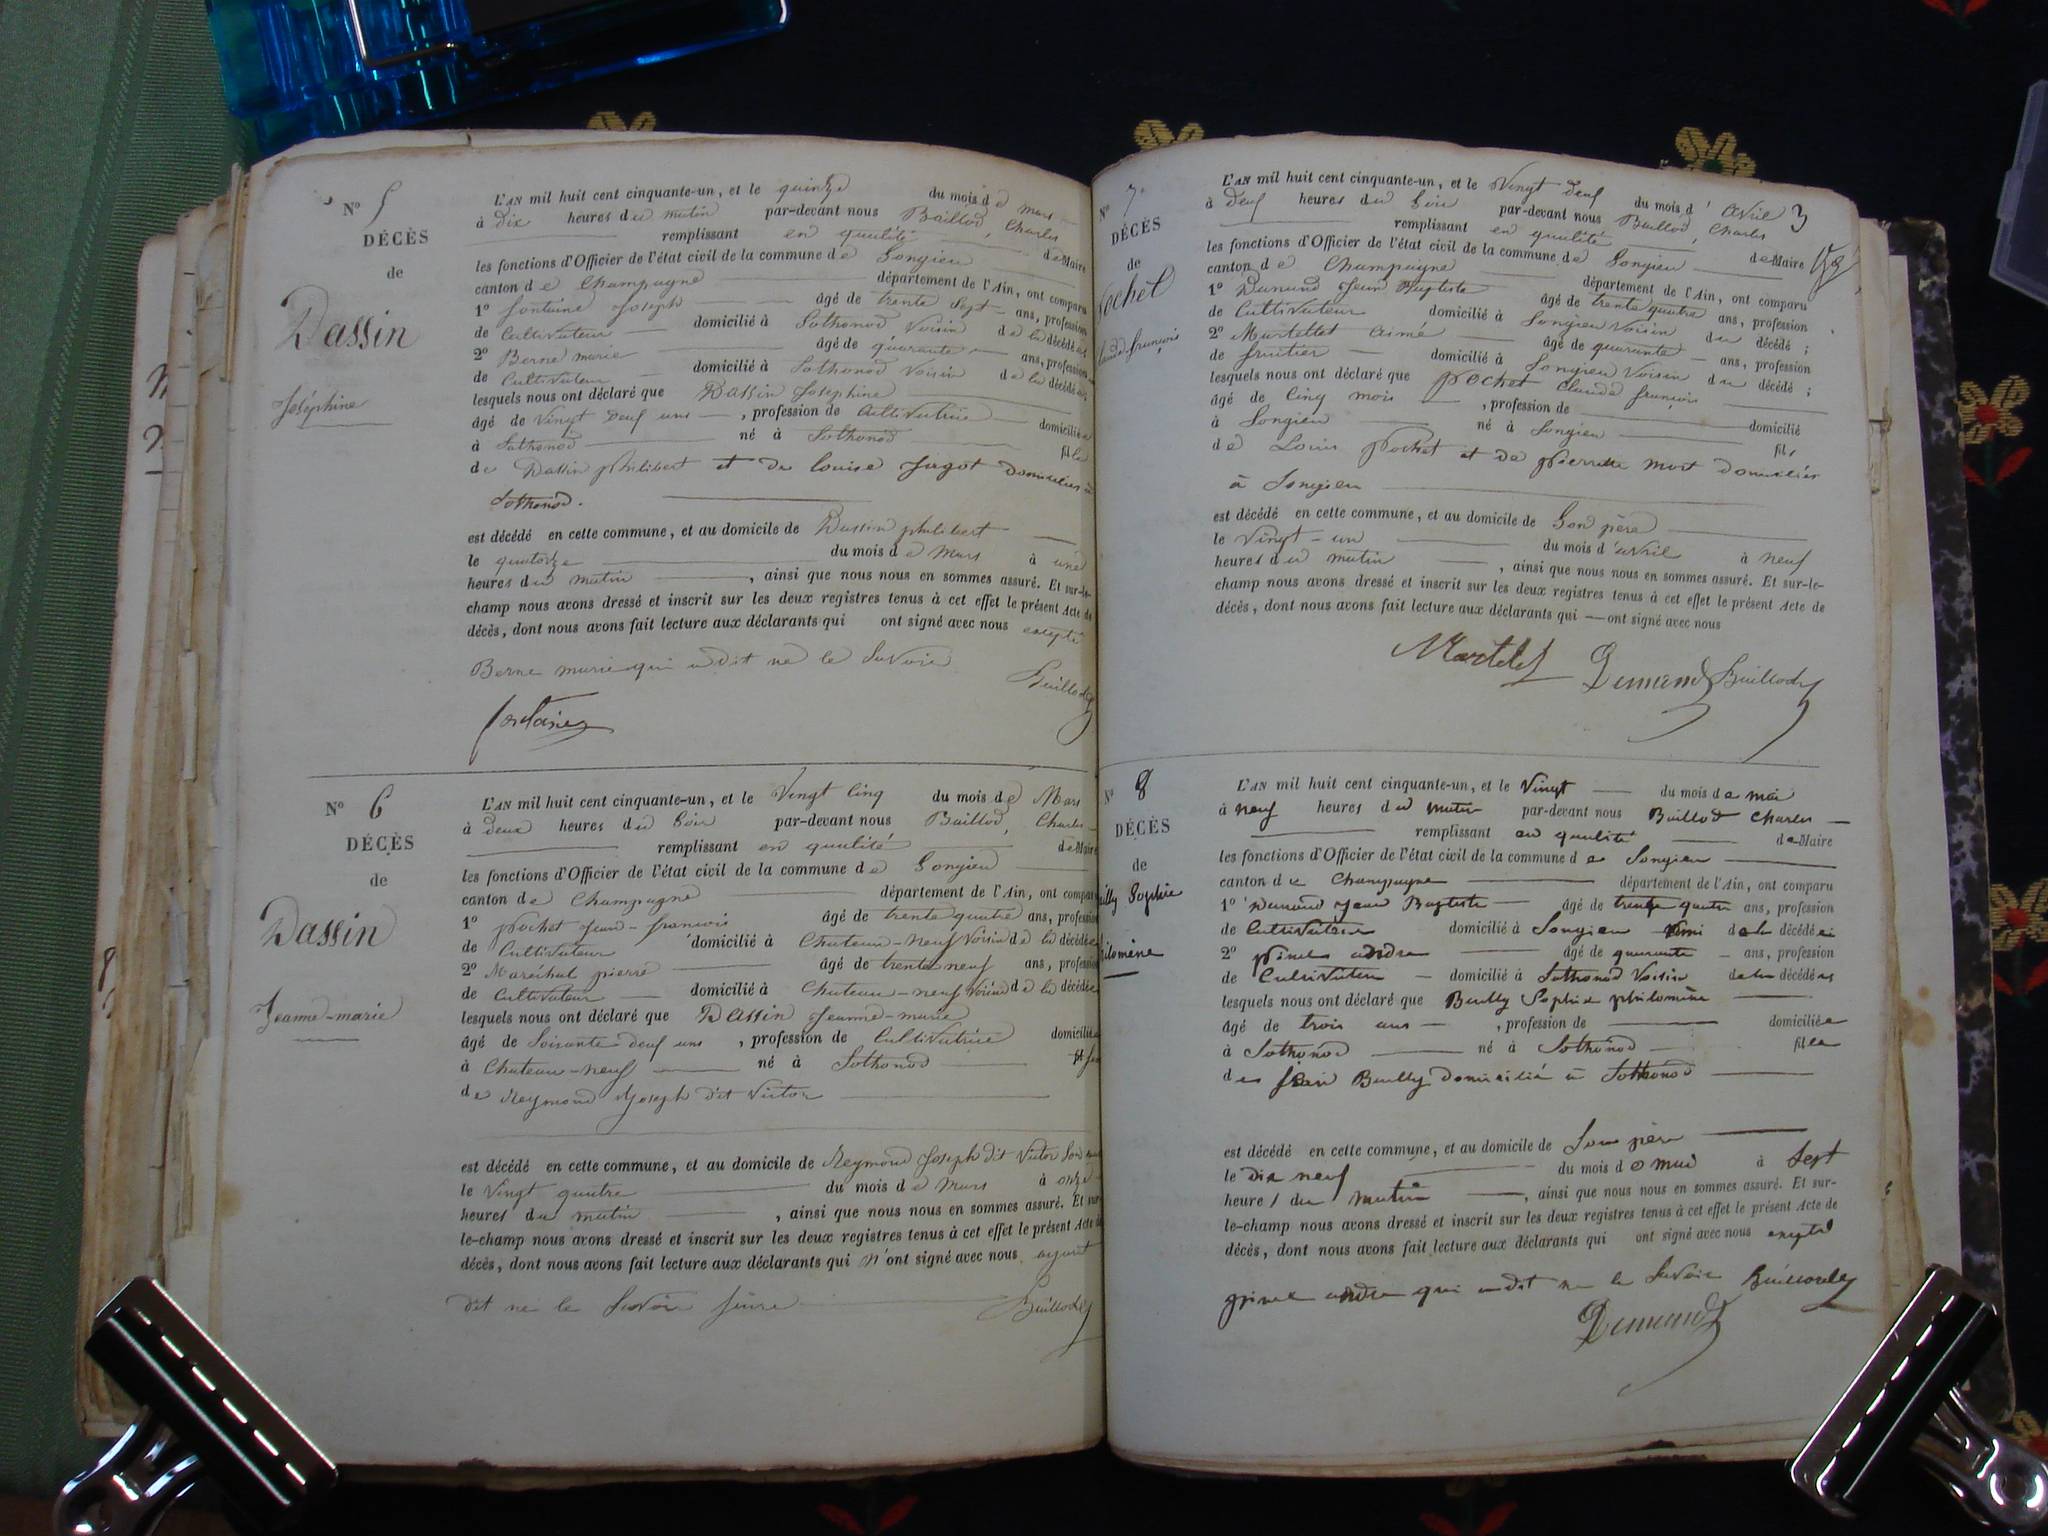 N° 5
DÉCÈS
de
Dassin
Joséphine
L'AN mil huit cent cinquante-un, et le quinze du mois de mars
à dix heures du matin par-devant nous Baillod, Charles
remplissant en qualité de Maire
les fonctions d'Officier de l'état civil de la commune de Songieu
canton de Champagne département de l'Ain, ont comparu
1° fontaine Joseph âgé de trente sept ans, profession
de Cultivateur domicilié à Sothonod Voisin de la décédée
2° Berne marie âgé de quarante ans, profession
de Cultivateur domicilié à Sothonod Voisin de la décédée
lesquels nous ont déclaré que Dassin Joséphine
âgé de Vingt deux ans, profession de Cultivatrice domiciliée
à Sothonod né à Sothonod fille
de Dassin philibert et de louise Jugot domiciliés à
Sothonod.
est décédé en cette commune, et au domicile de Dassin philibert
le quatorze du mois de Mars à une
heures du matin, ainsi que nous nous en sommes assuré. Et sur-le-
champ nous avons dressé et inscrit sur les deux registres tenus à cet effet le présent Acte de
décès, dont nous avons fait lecture aux déclarants qui ont signé avec nous excepté
Berne marie qui a dit ne le Savoir
Baillod
fontaine
N° 6
DÉCÈS
de
Dassin
Jeanne-marie
L'AN mil huit cent cinquante-un, et le Vingt Cinq du mois de Mars
à deux heures du Soir par-devant nous Baillod, Charles
remplissant en qualité de Maire
les fonctions d'Officier de l'état civil de la commune de Songieu
canton de Champagne département de l'Ain, ont comparu
1° pochet Jean-francois âgé de trente quatre ans, profession
de Cultivateur domicilié à Chateau-neuf Voisin de la décédée
2° Maréchal pierre âgé de trente neuf ans, profession
de Cultivateur domicilié à Chateau-neuf Voisin de la décédée
lesquels nous ont déclaré que Dassin Jeanne-marie
âgé de Soixante deux ans, profession de Cultivatrice domiciliée
à Chateau-neuf né à Sothonod
de Reymond Joseph dit Victor
est décédé en cette commune, et au domicile de Reymond Joseph dit Victor Son
le Vingt quatre du mois de Mars à onze
heures du matin, ainsi que nous nous en sommes assuré. Et sur-
le-champ nous avons dressé et inscrit sur les deux registres tenus à cet effet le présent Acte de
décès, dont nous avons fait lecture aux déclarants qui n'ont signé avec nous ayant
dit ne le Savoir faire Baillod
3
N° 7
DÉCÈS
de
ochet
laude françois
L'AN mil huit cent cinquante-un, et le Vingt deux du mois d'avril
à deux heures du Soir par-devant nous Baillod, Charles
remplissant en qualité de Maire
les fonctions d'Officier de l'état civil de la commune de Songieu
canton de Champagne département de l'Ain, ont comparu
1° Dunand Jean Baptiste âgé de trente quatre ans, profession
de Cultivateur domicilié à Songieu Voisin du décédé ;
2° Martellet aimé âgé de quarante ans, profession
de fruitier domicilié à Songieu Voisin du décédé ;
lesquels nous ont déclaré que pochet Claude françois
âgé de Cinq mois, profession de domicilié
à Songieu né à Songieu fils
de Louis pochet et de pierrette mort domiciliés
à Songieu
est décédé en cette commune, et au domicile de Son père
le Vingt-un du mois d'avril à neuf
heures du matin, ainsi que nous nous en sommes assuré. Et sur-le-
champ nous avons dressé et inscrit sur les deux registres tenus à cet effet le présent Acte de
décès, dont nous avons fait lecture aux déclarants qui ont signé avec nous
Martelet Dunand Baillod
N° 8
DÉCÈS
de
illy Sophie
ilomène
L'AN mil huit cent cinquante-un, et le Vingt du mois de mai
à neuf heures du matin par-devant nous Baillod Charles
remplissant en qualité de Maire
les fonctions d'Officier de l'état civil de la commune de Songieu
canton de Champagne département de l'Ain, ont comparu
1° Dunand Jean Baptiste âgé de trente quatre ans, profession
de Cultivateur domicilié à Songieu ami de la décédée
2° pinel andre âgé de quarante ans, profession
de Cultivateur domicilié à Sothonod Voisin de la décédée
lesquels nous ont déclaré que Bailly Sophie philomène
âgé de trois ans, profession de domiciliée
à Sothonod né à Sothonod fille
de Bailly domicilié à Sothonod
est décédé en cette commune, et au domicile de Son père
le dix neuf du mois de mai à Sept
heures du matin, ainsi que nous nous en sommes assuré. Et sur-
le-champ nous avons dressé et inscrit sur les deux registres tenus à cet effet le présent Acte de
décès, dont nous avons fait lecture aux déclarants qui ont signé avec nous excepté
pinel andre qui a dit ne le Savoir Baillod
Dunand